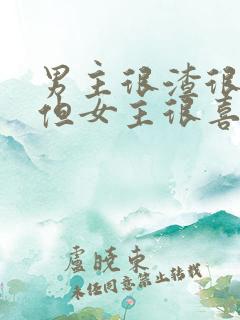 男主很渣很
但女主很喜
盧曉東
未经同意禁止转载